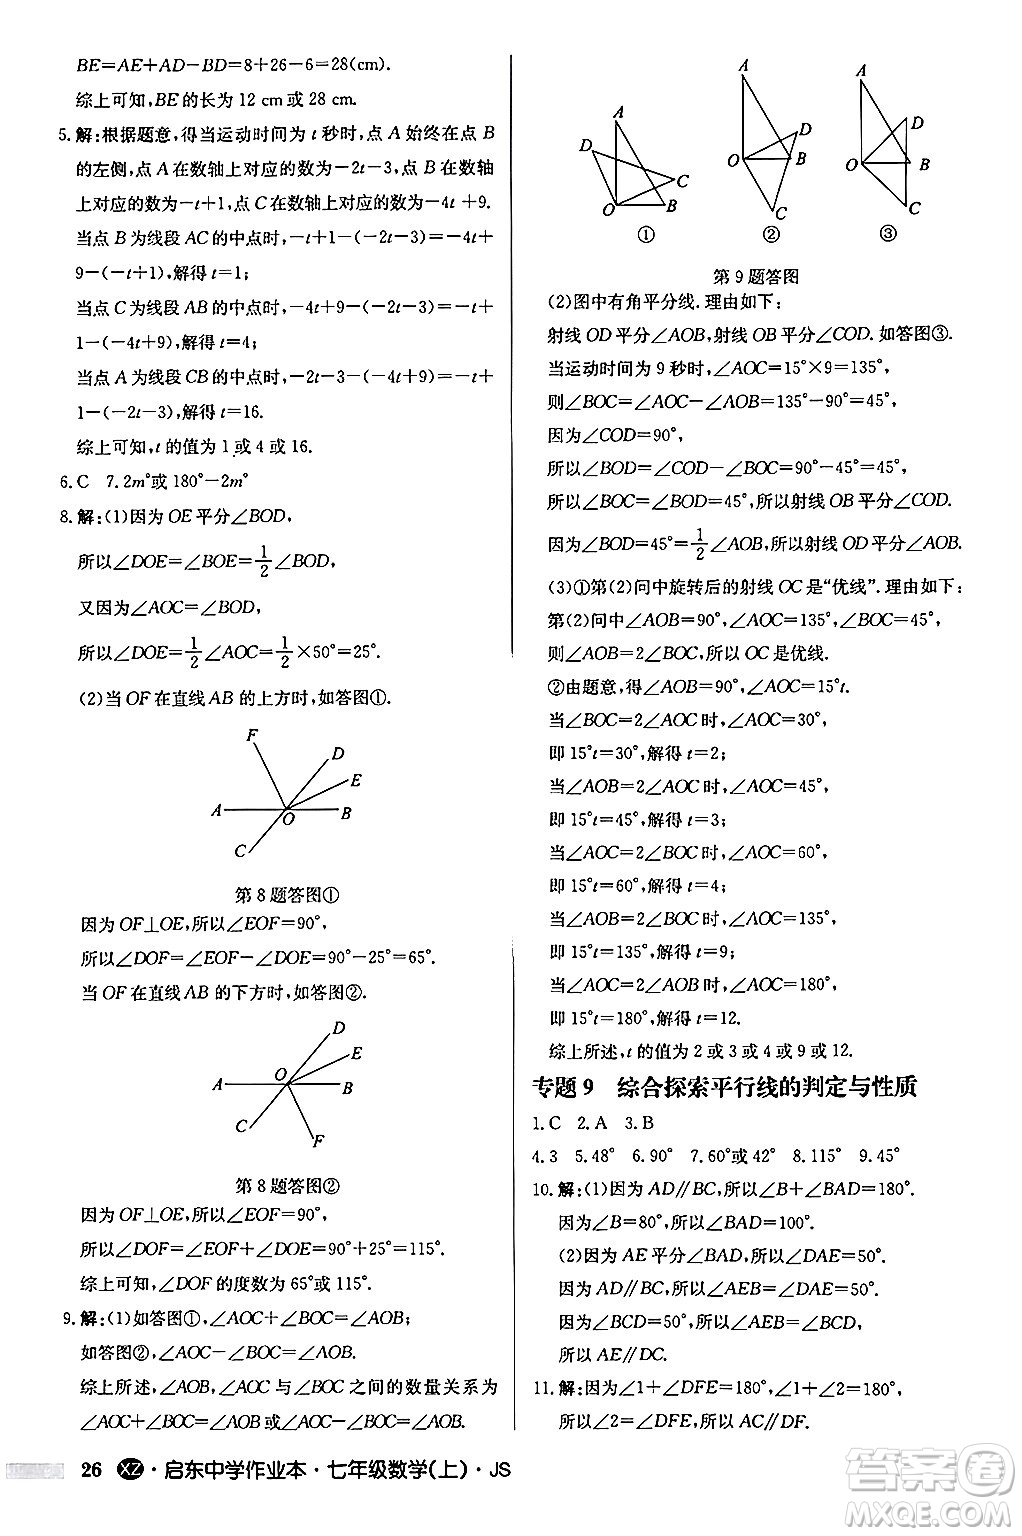 BE=AE+AD-BD=8+26-6=28(cm).
综上可知,BE的长为 12 cm或 28 cm.
5. 解:根据题意,得当运动时间为 t 秒时,点 A 始终在点 B
的左侧,点 A 在数轴上对应的数为-2t-3,点 B 在数轴
上对应的数为-t+1,点 C 在数轴上对应的数为-4t+9.
当点 B 为线段 AC 的中点时,-t+1-(-2t-3)=-4t+
9-(-t+1),解得 t=1;
当点 C 为线段 AB 的中点时,-4t+9-(-2t-3)=-t+
1-(-4t+9),解得 t=4;
当点 A 为线段 CB 的中点时,-2t-3-(-4t+9)=-t+
1-(-2t-3),解得 t=16.
综上可知,t 的值为 1 或 4 或 16.
6. C 7. 2m°或 180°-2m°
8. 解:(1)因为 OE 平分∠BOD,
所以∠DOE=∠BOE=1/2∠BOD,
又因为∠AOC=∠BOD,
所以∠DOE=1/2∠AOC=1/2×50°=25°.
(2)当 OF 在直线 AB 的上方时,如答图①.
F
D
E
A
O
B
C
第 8 题答图①
因为 OF⊥OE,所以∠EOF=90°,
所以∠DOF=∠EOF-∠DOE=90°-25°=65°.
当 OF 在直线 AB 的下方时,如答图②.
D
E
O
A
B
C
F
第 8 题答图②
因为 OF⊥OE,所以∠EOF=90°,
所以∠DOF=∠EOF+∠DOE=90°+25°=115°.
综上可知,∠DOF 的度数为 65°或 115°.
9. 解:(1)如答图①,∠AOC+∠BOC=∠AOB;
如答图②,∠AOC-∠BOC=∠AOB.
综上所述,∠AOC 与∠BOC 之间的数量关系为
∠AOC+∠BOC=∠AOB或∠AOC-∠BOC=∠AOB.
A
D
C
O
B
①
A
D
O
B
C
②
A
D
O
B
C
③
第 9 题答图
(2)图中有角平分线. 理由如下:
射线 OD 平分∠AOB,射线 OB 平分∠COD. 如答图③.
当运动时间为 9 秒时,∠AOC=15°×9=135°,
则∠BOC=∠AOC-∠AOB=135°-90°=45°,
因为∠COD=90°,
所以∠BOD=∠COD-∠BOC=90°-45°=45°,
所以∠BOC=∠BOD=45°,所以射线 OB 平分∠COD.
因为∠BOD=45°=1/2∠AOB,所以射线 OD 平分∠AOB.
(3)①第(2)问中旋转后的射线 OC 是“优线”. 理由如下:
第(2)问中∠AOB=90°,∠AOC=135°,∠BOC=45°,
则∠AOB=2∠BOC,所以 OC 是优线.
②由题意,得∠AOB=90°,∠AOC=15°t.
当∠BOC=2∠AOC 时,∠AOC=30°,
即 15°t=30°,解得 t=2;
当∠AOB=2∠AOC 时,∠AOC=45°,
即 15°t=45°,解得 t=3;
当∠AOC=2∠BOC 时,∠AOC=60°,
即 15°t=60°,解得 t=4;
当∠AOB=2∠BOC 时,∠AOC=135°,
即 15°t=135°,解得 t=9;
当∠AOC=2∠AOB 时,∠AOC=180°,
即 15°t=180°,解得 t=12.
综上所述,t 的值为 2 或 3 或 4 或 9 或 12.
专题 9 综合探索平行线的判定与性质
1. C 2. A 3. B
4. 3 5. 48° 6. 90° 7. 60°或 42° 8. 115° 9. 45°
10. 解:(1)因为 AD∥BC,所以∠B+∠BAD=180°.
因为∠B=80°,所以∠BAD=100°.
(2)因为 AE 平分∠BAD,所以∠DAE=50°.
因为 AD∥BC,所以∠AEB=∠DAE=50°.
因为∠BCD=50°,所以∠AEB=∠BCD,
所以 AE∥DC.
11. 解:因为∠1+∠DFE=180°,∠1+∠2=180°,
所以∠2=∠DFE,所以 AC∥DF.
26 XZ·启东中学作业本·七年级数学(上)·JS
答案圈
MXQE.COM